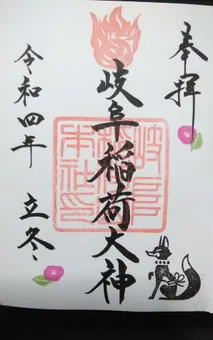 奉拝
岐阜稲荷大神
令和四年 立冬